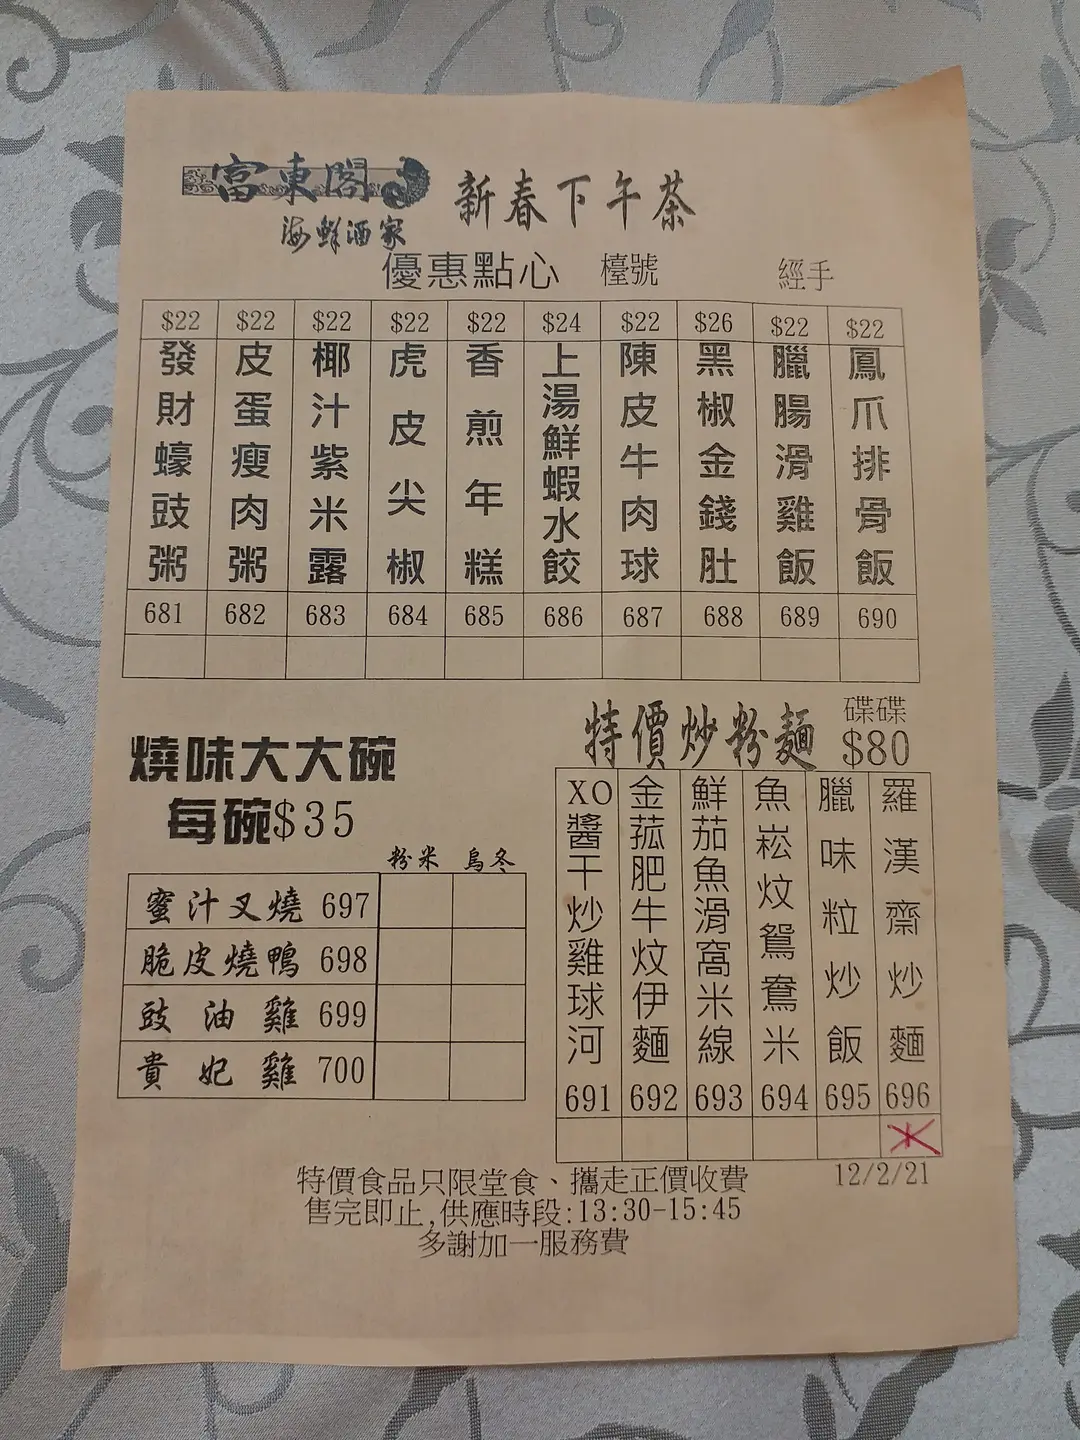 富東閣
海鮮酒家
新春下午茶
優惠點心 檯號 經手
$22 $22 $22 $22 $22 $24 $22 $26 $22 $22
發財蠔豉粥
皮蛋瘦肉粥
椰汁紫米露
虎皮尖椒
香煎年糕
上湯鮮蝦水餃
陳皮牛肉球
黑椒金錢肚
臘腸滑雞飯
鳳爪排骨飯
681 682 683 684 685 686 687 688 689 690
燒味大大碗
每碗$35
粉米 烏冬
蜜汁叉燒 697
脆皮燒鴨 698
豉油雞 699
貴妃雞 700
特價炒粉麵 碟碟
$80
XO醬干炒雞球河
金菰肥牛炆伊麵
鮮茄魚滑窩米線
魚崧炆鴛鴦米
臘味粒炒飯
羅漢齋炒麵
691 692 693 694 695 696
12/2/21
特價食品只限堂食、攜走正價收費
售完即止,供應時段:13:30-15:45
多謝加一服務費